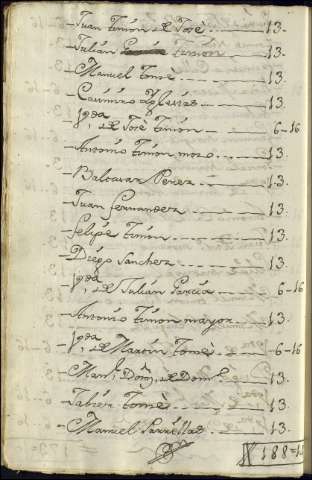 Juan Timon de Josè 13.
Julián Timon 13.
Manuel Tomè 13.
Casimiro Yglesias 13.
Yda. de Josè Timon 6-16
Antonio Timon mozo 13.
Baltasar Perez 13.
Juan Fernandez 13
Felipe Timon 13.
Diego Sanchez 13.
Yda. de Julián Garcia 6-16
Antonio Timon mayor 13.
Yda. de Martin Tomè 6-16
Manl. Domz. de Domo. 13.
Jabier Tomè 13.
Manuel 13.
188=1